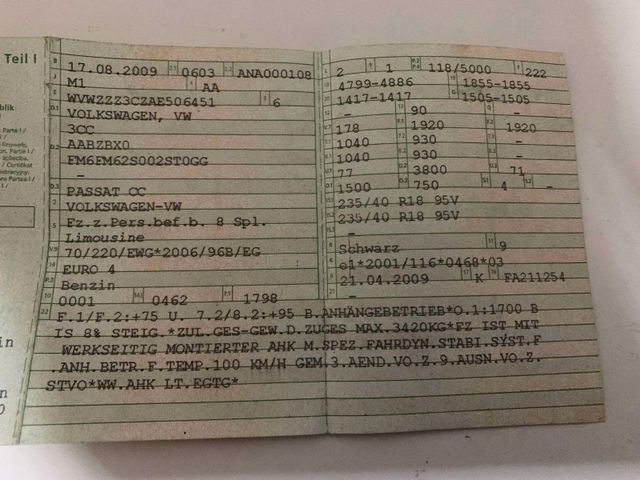 Teil I
B 17.08.2009 2.1 0603 2.2 ANA000108
J M1 4 AA
E WVWZZZ3CZAE506451 3 6
D.1 VOLKSWAGEN, VW
3CC
D.2 AABZBX0
FM6FM62S002ST0GG
-
D.3 PASSAT CC
2 VOLKSWAGEN-VW
5 Fz.z.Pers.bef.b. 8 Spl.
Limousine
V.9 70/220/EWG*2006/96B/EG
14 EURO 4
P.3 Benzin
10 0001 14.1 0462 P.1 1798
L 2 9 1 P.2 P.4 118/5000 T 222
18 4799-4886 19 1855-1855
20 1417-1417 G 1505-1505
12 - 13 90 Q -
V.7 178 F.1 1920 F.2 1920
7.1 1040 7.2 930 7.3 -
8.1 1040 8.2 930 8.3 -
U.1 77 U.2 3800 U.3 71
O.1 1500 O.2 750 S.1 4 S.2 -
15.1 235/40 R18 95V
15.2 235/40 R18 95V
15.3 -
R Schwarz 11 9
K e1*2001/116*0468*03
6 21.04.2009 17 K 16 FA211254
21 -
22 F.1/F.2:+75 U. 7.2/8.2:+95 B.ANHÄNGEBETRIEB*O.1:1700 B
IS 8% STEIG.*ZUL.GES-GEW.D.ZUGES MAX.3420KG*FZ IST MIT
WERKSEITIG MONTIERTER AHK M.SPEZ.FAHRDYN.STABI.SYST.F
.ANH.BETR.F.TEMP.100 KM/H GEM.3.AEND.VO.Z.9.AUSN.VO.Z.
STVO*WW.AHK LT.EGTG*